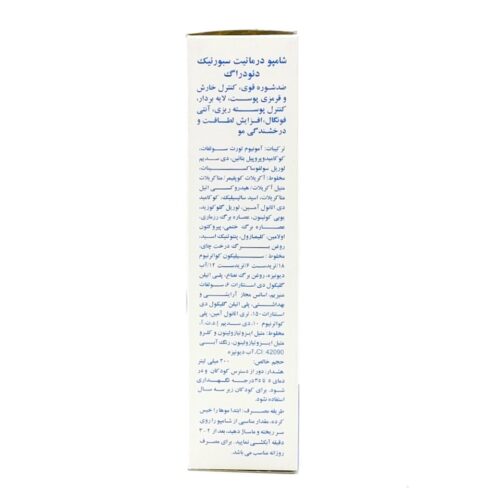 شامپو درماتیت سبورئیک
دئودراگ
ضدشوره قوی، کنترل خارش
و قرمزی پوست، لایه بردار،
کنترل پوسته ریزی، آنتی
فونگال، افزایش لطافت و
درخشندگی مو
ترکیبات: آمونیوم لورث سولفات،
کوکامیدوپروپیل بتائین، دی سدیم
لوریل سولفوساکسینات،
مخلوط: آکریلات کوپلیمر/ متاکریلات
متیل آکریلات/ هیدروکسی اتیل
متاکریلات، اسید سالیسیلیک، کوکامید
دی اتانول آمین، لوریل گلوکوزید،
یوبی کوئینون، عصاره برگ رزماری،
عصاره برگ ختمی، پیروکتون
اولامین، کلیمبازول، پنتوتنیک اسید،
روغن برگ درخت چای،
مخلوط: سیلیکون کواترنیوم
۱۸/تریدست ۶/تریدست ۱۲/آب
دیونیزه، روغن برگ نعناع، پلی اتیلن
گلیکول دی استئارات ۶، سولفات
منیزیم، اسانس مجاز آرایشی و
بهداشتی، پلی اتیلن گلیکول دی
استئارات ۱۵۰، تری اتانول آمین، پلی
کواترنیوم ۱۰، دی سدیم ا.د.ت.آ،
مخلوط: متیل ایزوتیازولینون و کلرو
متیل ایزوتیازولینون، رنگ آبی
CI: 42090، آب دیونیزه
حجم خالص: ۲۰۰ میلی لیتر
هشدار: دور از دسترس کودکان و در
دمای ۵ تا ۳۵ درجه نگهداری
شود. برای کودکان زیر سه سال
استفاده نشود.
طریقه مصرف: ابتدا موها را خیس
کرده، مقدار مناسبی از شامپو را روی
سر ریخته و ماساژ دهید، بعد از ۲-۳
دقیقه آبکشی نمایید. برای مصرف
روزانه مناسب می باشد.